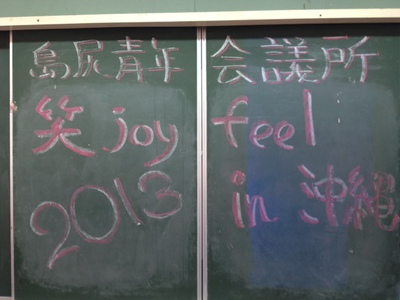 島尻青年会議所
笑joy feel
2013 in 沖縄